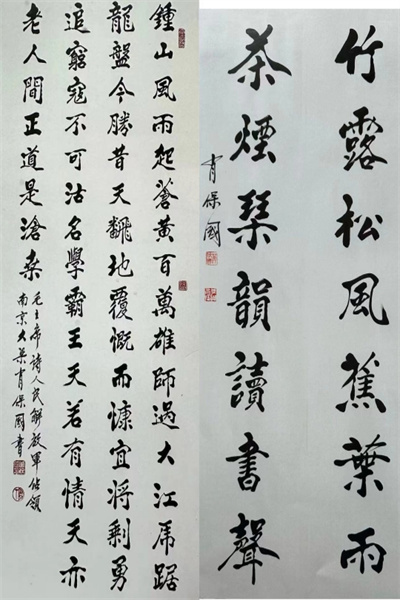 鍾山風雨起蒼黃百萬雄師過大江虎踞
龍盤今勝昔天翻地覆慨而慷宜將剩勇
追窮寇不可沽名學霸王天若有情天亦
老人間正道是滄桑
毛主席詩人民解放軍佔領
南京 肖保國書
竹露松風蕉葉雨
茶煙琴韻讀書聲
肖保國